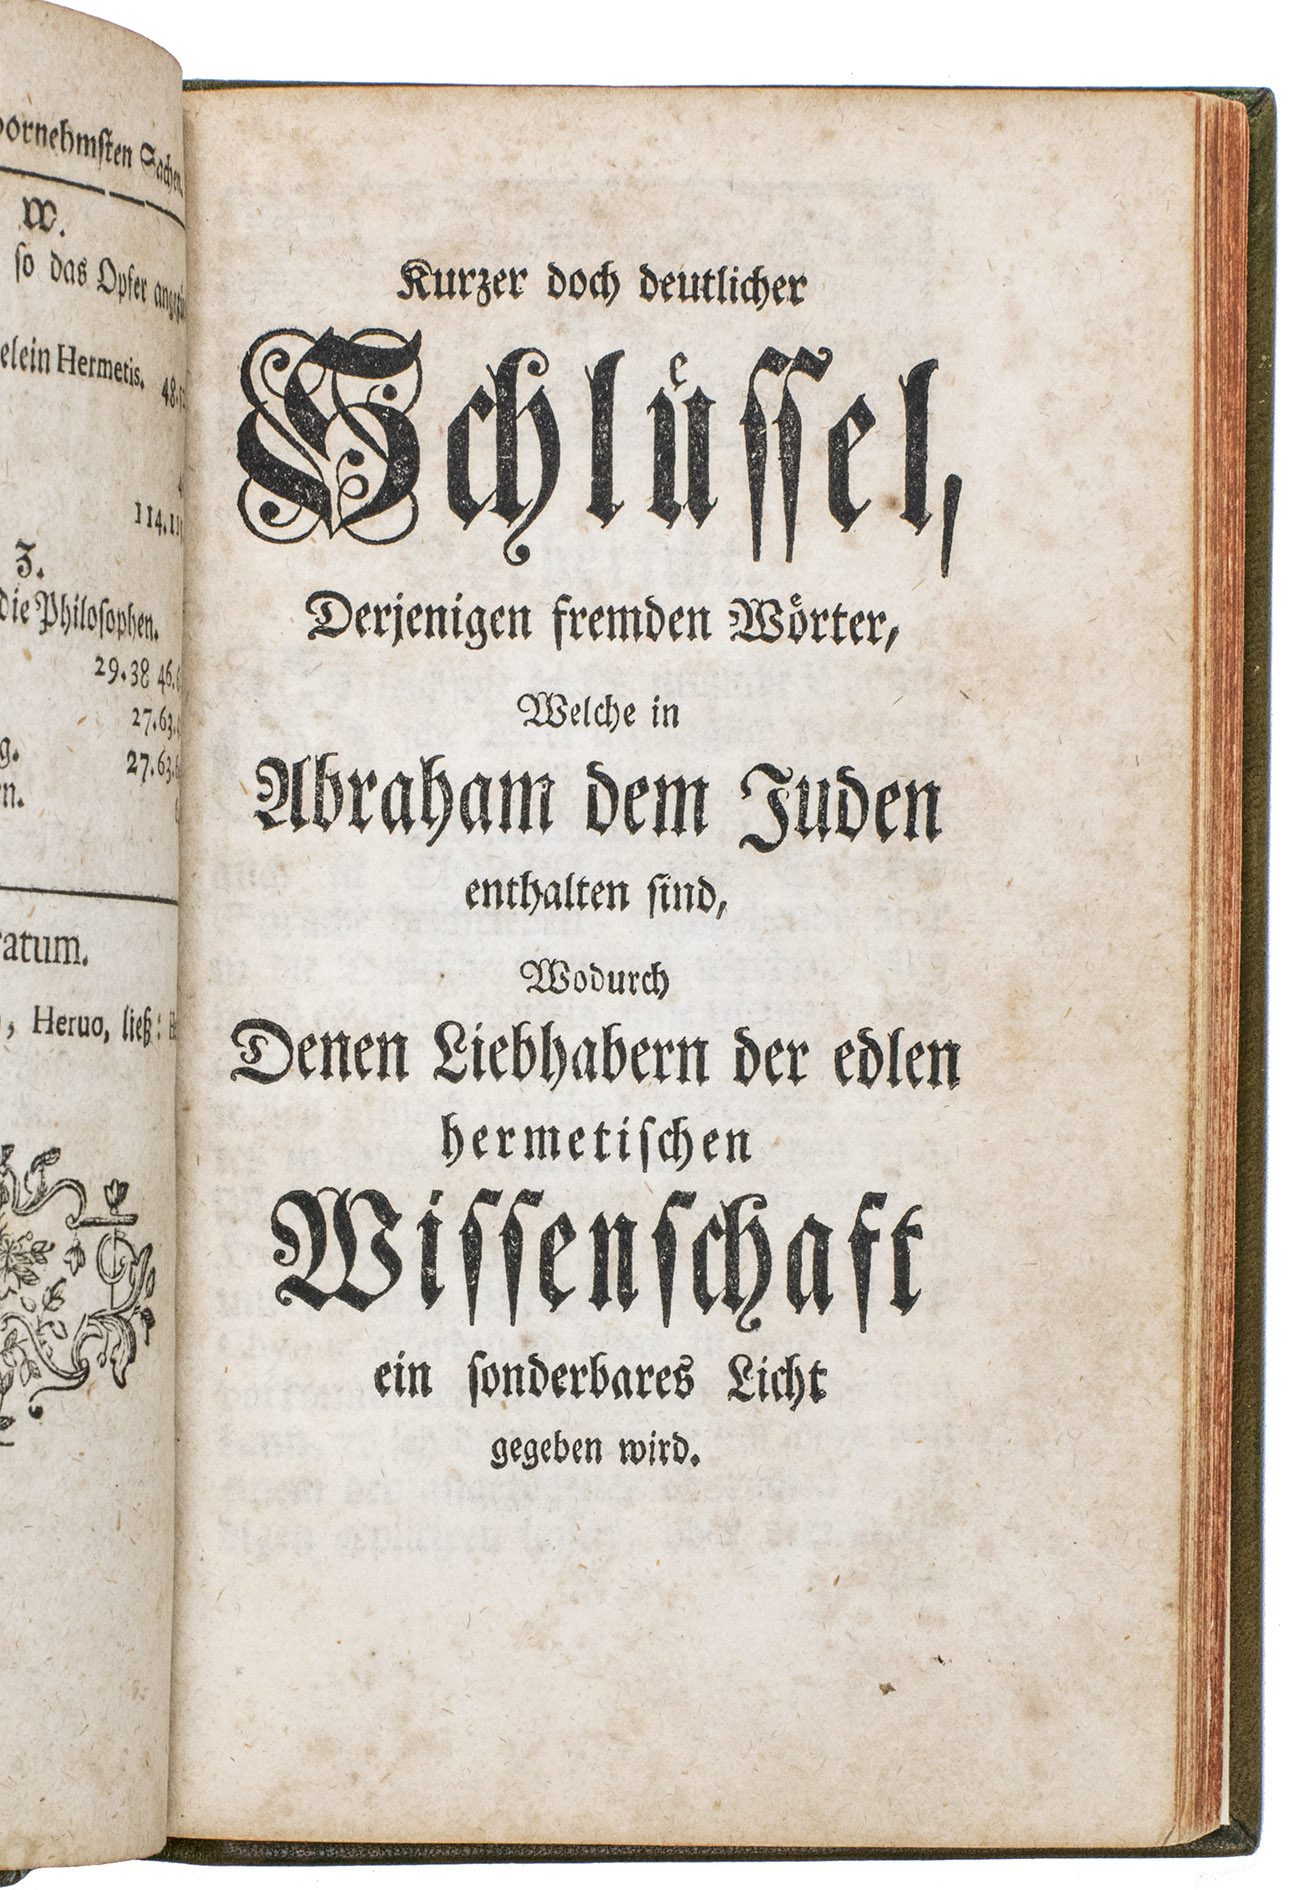 vornehmsten Sachen.
W.
so das Opfer
elein Hermetis. 48.
114.
Z.
die Philosophen.
29.38 46.
27.63.
g. 27.63.
n.
ratum.
, Heruo, ließ:
Kurzer doch deutlicher
Schlüssel,
Derjenigen fremden Wörter,
Welche in
Abraham dem Juden
enthalten sind,
Wodurch
Denen Liebhabern der edlen
hermetischen
Wissenschaft
ein sonderbares Licht
gegeben wird.